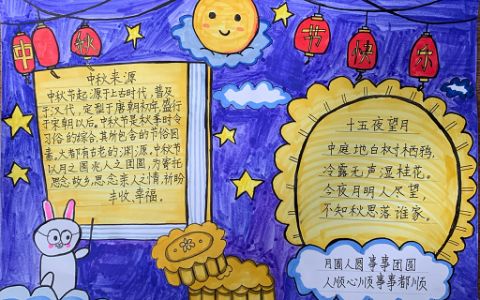 中秋
节快乐
中秋来源
中秋节起源于上古时代,普及
于汉代,定型于唐朝初年,盛行
于宋朝以后。中秋节是秋季时令
习俗的综合,其所包含的节俗因
素,大都有古老的渊源。中秋节
以月之圆兆人之团圆,为寄托
思念故乡,思念亲人之情,祈盼
丰收、幸福。
十五夜望月
中庭地白树栖鸦,
冷露无声湿桂花。
今夜月明人尽望,
不知秋思落谁家。
月圆人圆事事团圆
人顺心顺事事都顺